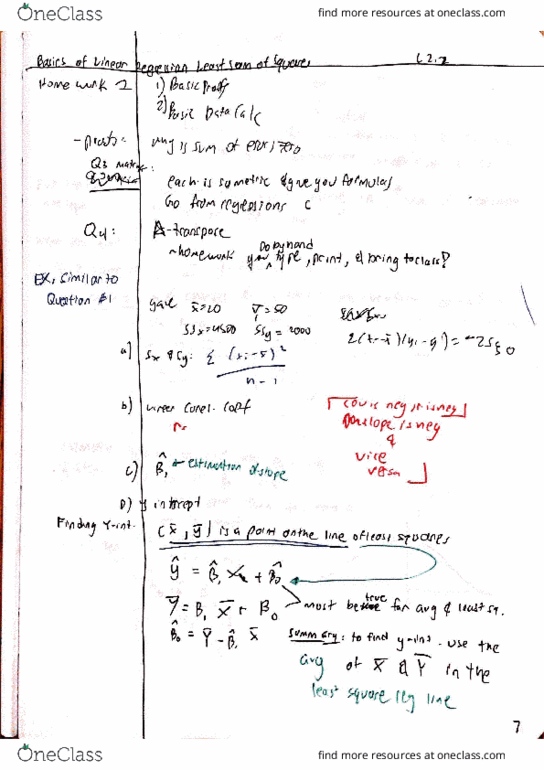 OneClass
find more resources at oneclass.com
Basics of Linear Regression Least sum of Squares L2.2
Homework 2 1) Basic Proofs
2) Basic Data Calc
- proofs: why is sum of errors zero
Q3
each is sometric & give you formulas
Go from regressions
Q4: A-transpose
Do by hand
homework you type, print, & bring to class?
Ex, similar to
Question #1
gave x̄=20 ȳ=50
SSx=4500 SSy=2000
a) Sx & Sy: Σ (xi-x̄)²
n-1
b) linear Corel. Coef
r=
cov is neg, r is neg
slope is neg
&
vice
versa
c) β̂₁ ← estimation of slope
D) y intercept
Finding Y-int. (x̄, ȳ) is a point on the line of least squares
ŷ = β̂₁ x + β̂₀
ȳ = B₁ x̄ + B₀ most be true for avg & least sq.
β̂₀ = ȳ - β̂₁ x̄ Summary: to find y-int. use the
avg of x̄ & ȳ in the
least square reg line
7
OneClass
find more resources at oneclass.com